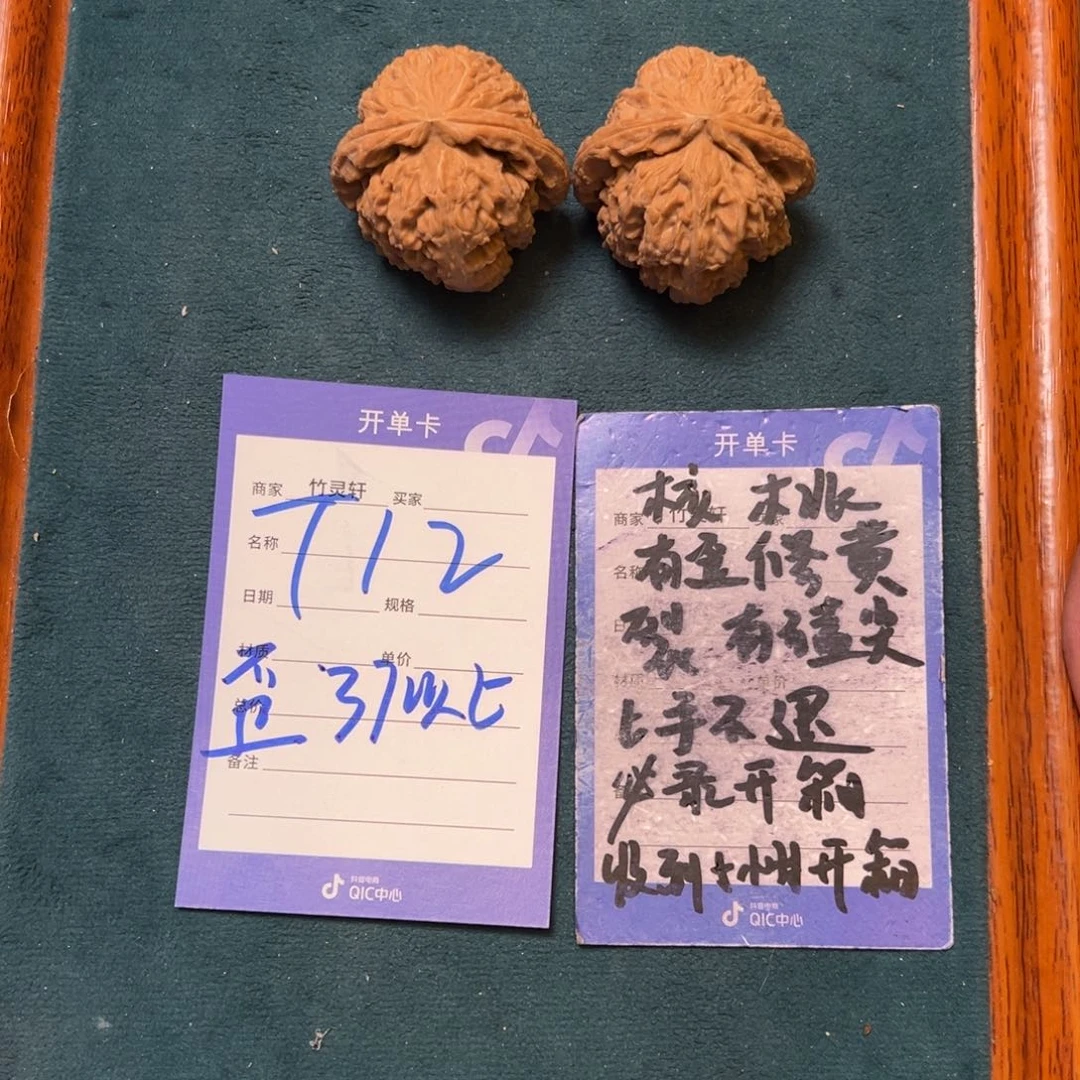 开单卡
商家 竹灵轩 买家
名称
T12
日期 规格
材质 单价
歪 37以上
总价
备注
抖音电商
QIC中心
开单卡
核 木
商家 竹 轩
名称
有歪修黄
裂 有磕尖
材质 单价
上手不退
必录开箱
收到 开箱
抖音电商
QIC中心